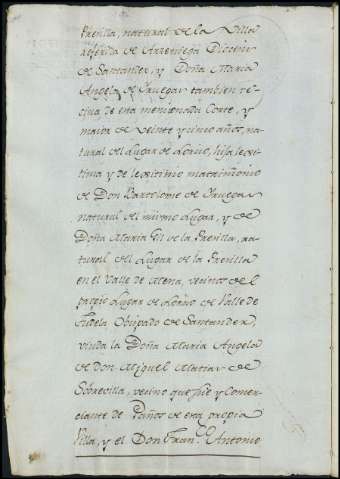 Presilla, natural de la Villa
referida de Arzeniega Diocesis
de Santander, y Doña Maria
Angela de Yruegas tambien ve-
cina de esta mencionada Corte, y
maior de veinte y cinco años, na-
tural del Lugar de Lorcio, hija lexi-
tima y de lexitimo matrimonio
de Don Bartolome de Yruegas
natural del mismo Lugar, y de
Doña Maria Gil de la Presilla, na-
tural del Lugar de la Presilla
en el Valle de Mena, vecinos del
propio Lugar de Valle de
Tudela Obispado de Santander,
viuda la Doña Maria Angela
de Don Miguel Matias de
Sobrevilla, vecino que fue y Comer-
ciante de Paños de esta propia
Villa, y el Don Fran.co Antonio